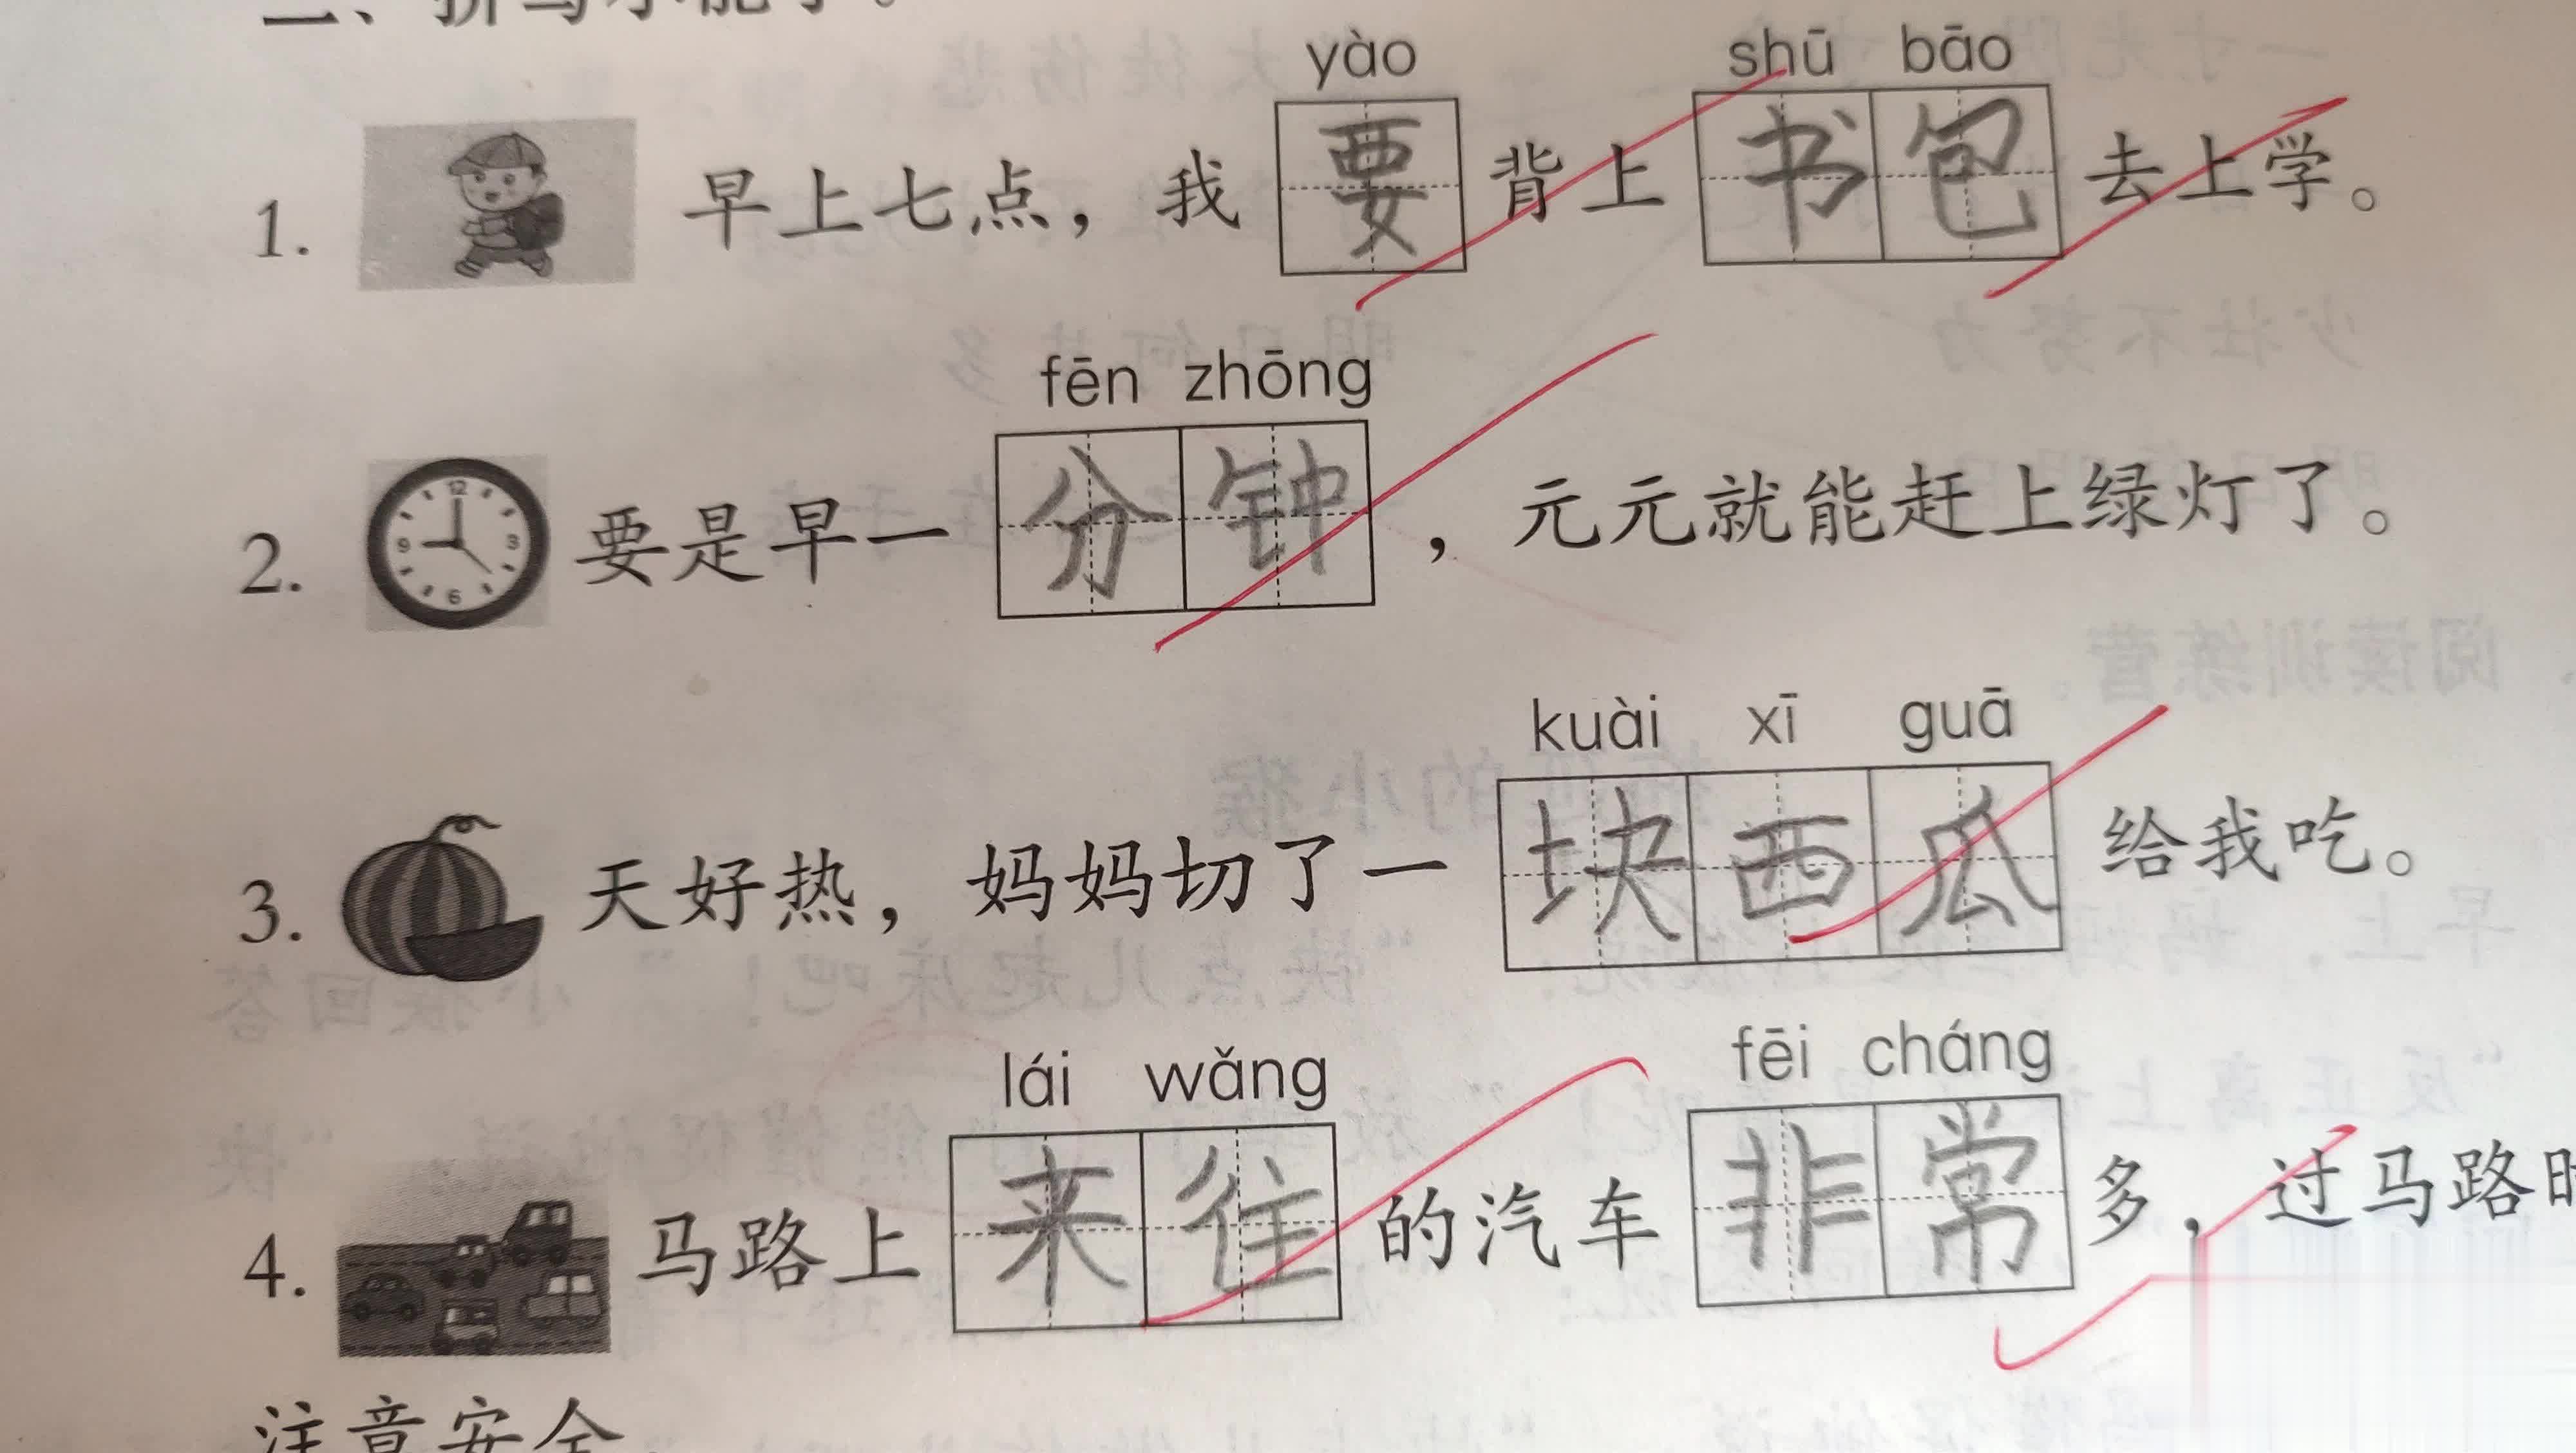 二、拼写小能手。
yào shū bāo
1. 早上七点，我要背上书包去上学。
fēn zhōng
12
9 3
6
2. 要是早一分钟，元元就能赶上绿灯了。
kuài xī guā
3. 天好热，妈妈切了一块西瓜给我吃。
lái wǎng fēi cháng
4. 马路上来往的汽车非常多，过马路时
注意安全